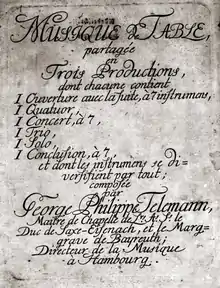 Musique de Table,
partagée
en
Trois Productions,
dont chacune contient
I Ouverture avec la suite, à 7 instrumens,
I Quatuor,
I Concert, à 7,
I Trio,
I Solo,
I Conclusion, à 7,
et dont les instrumens se di-
versifient par tout;
composée
par
George Philippe Telemann,
Maître de Chapelle de L. A. S. le
Duc de Saxe-Eisenach, et le Marg-
grave de Bayreuth;
Directeur de la Musique
à Hambourg.